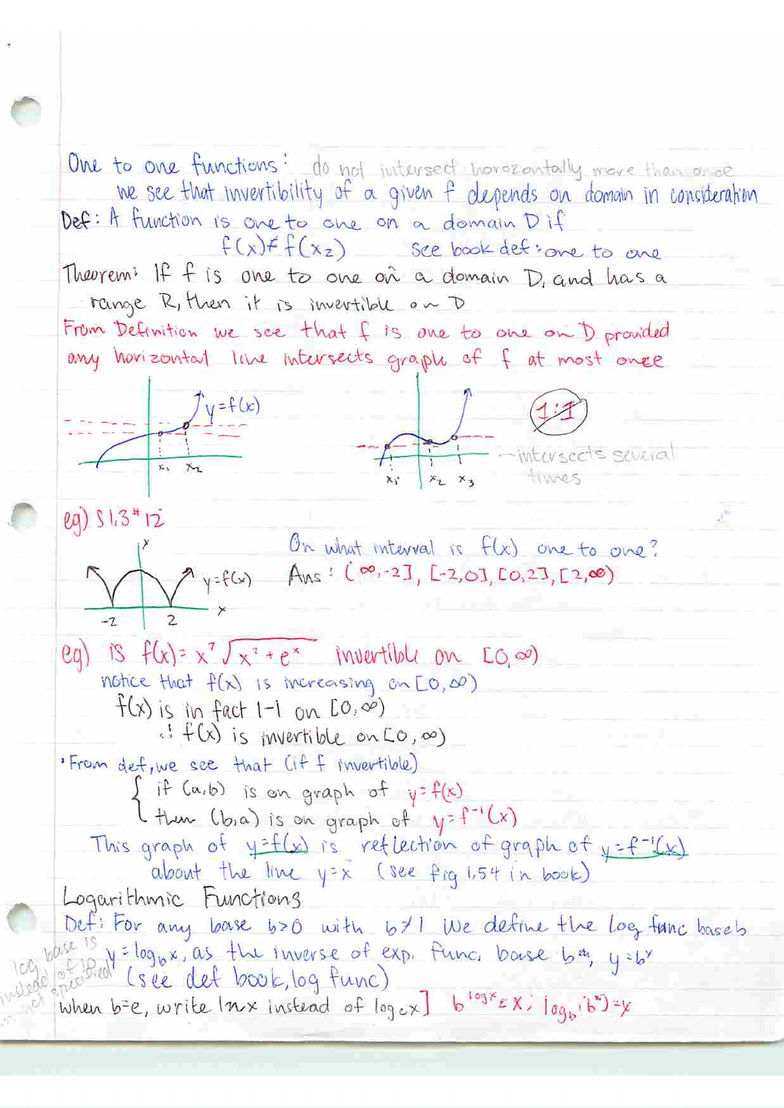 One to one functions: do not intersect horozontally more than once
we see that invertibility of a given f depends on domain in consideration
Def: A function is one to one on a domain D if
f(x) ≠ f(x₂) see book def: one to one
Theorem: If f is one to one on a domain D, and has a
range R, then it is invertible on D
From Definition we see that f is one to one on D provided
any horizontal line intersects graph of f at most once
y=f(x)
1:1
x₁ x₂
x₁ x₂ x₃
-intersects several
times
eg) §1.3 #12
On what interval is f(x) one to one?
Ans: (∞,-2], [-2,0], [0,2], [2,∞)
y=f(x)
x
-2 2 x
eg) is f(x)= x⁷ √(x² + eˣ) invertible on [0,∞)
notice that f(x) is increasing on [0,∞)
f(x) is in fact 1-1 on [0,∞)
∴ f(x) is invertible on [0,∞)
• From def, we see that (if f invertible)
{ if (a,b) is on graph of y=f(x)
then (b,a) is on graph of y=f⁻¹(x)
This graph of y=f(x) is reflection of graph of y=f⁻¹(x)
about the line y=x (see fig 1.54 in book)
Logarithmic Functions
Def: For any base b>0 with b≠1 we define the log func base b
y=log_b x, as the inverse of exp. func. base b, y=bˣ
(see def book, log func)
log base is
instead of 10
not specified
when b=e, write lnx instead of log_e x]